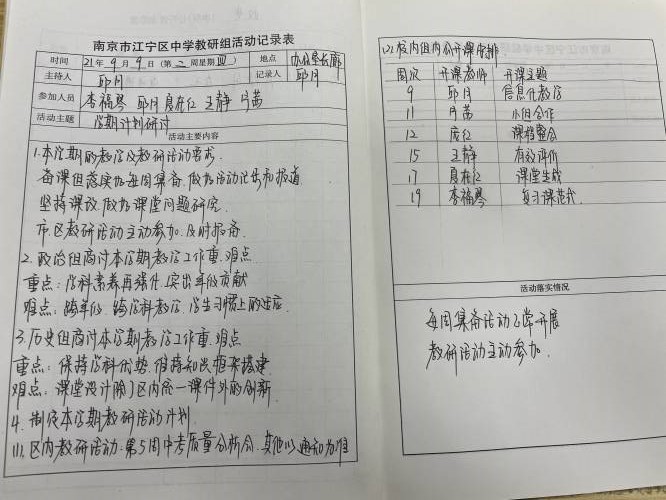 南京市江宁区中学教研组活动记录表
时间 21年9月9日(第二周星期四) 地点 办公室长廊
主持人 邱月 记录人 邱月
参加人员 李福琴 邱月 夏在红 王静 片茜
活动主题 学期计划研讨
活动主要内容
1.本学期的教学及教研活动要求
备课组落实好每周集备,做好活动记录和报道
坚持课改,做好课堂问题研究.
市区教研活动主动参加,及时报备.
2.政治组商讨本学期教学工作重、难点
重点:学科素养再强化,突出年级贡献
难点:跨年级、跨学科教学,学生习惯上的适应.
3.历史组商讨本学期教学工作重、难点
重点:保持学科优势,保持知识框架搭建
难点:课堂设计除了区内统一课件外的创新
4.制定本学期教研活动计划
(1).区内教研活动:第5周中考质量分析会,其他以通知为准
(2)校内组内公开课安排
周次 开课教师 开课主题
9 邱月 信息化教学
11 片茜 小组合作
12 庞红 课程整合
15 王静 有效评价
17 夏在红 课堂生成
19 李福琴 复习课范式
活动落实情况
每周集备活动正常开展
教研活动主动参加.